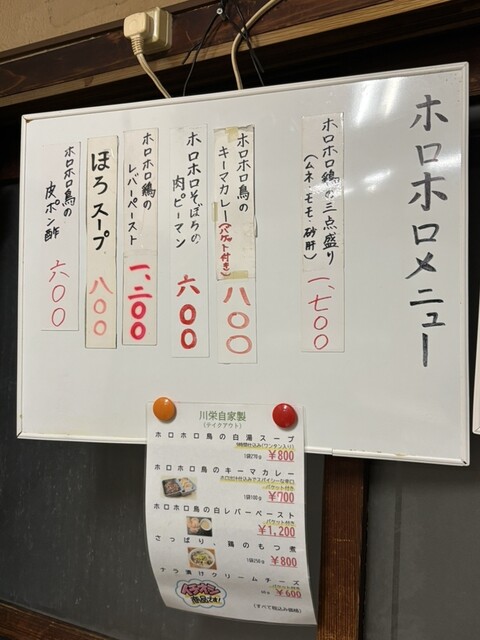 ホロホロメニュー
ホロホロ鶏の三点盛り
(ムネ・モモ・砂肝)
一、七〇〇
ホロホロ鳥の
キーマカレー(バケット付き)
八〇〇
ホロホロそぼろの
肉ピーマン
六〇〇
ホロホロ鶏の
レバーペースト
一、二〇〇
ほろスープ
八〇〇
ホロホロ鳥の
皮ポン酢
六〇〇
川栄自家製
(テイクアウト)
ホロホロ鳥の白湯スープ
1袋270g ¥800
ホロホロ鳥のキーマカレー
バケット付き
1袋100g ¥700
ホロホロ鳥の白レバーペースト
バケット付き
¥1,200
さっぱり、鶏のもつ煮
1袋250g ¥800
ナラ漬けクリームチーズ
バケット付き
¥600
イチオシ
商品です!
(すべて税込み価格)